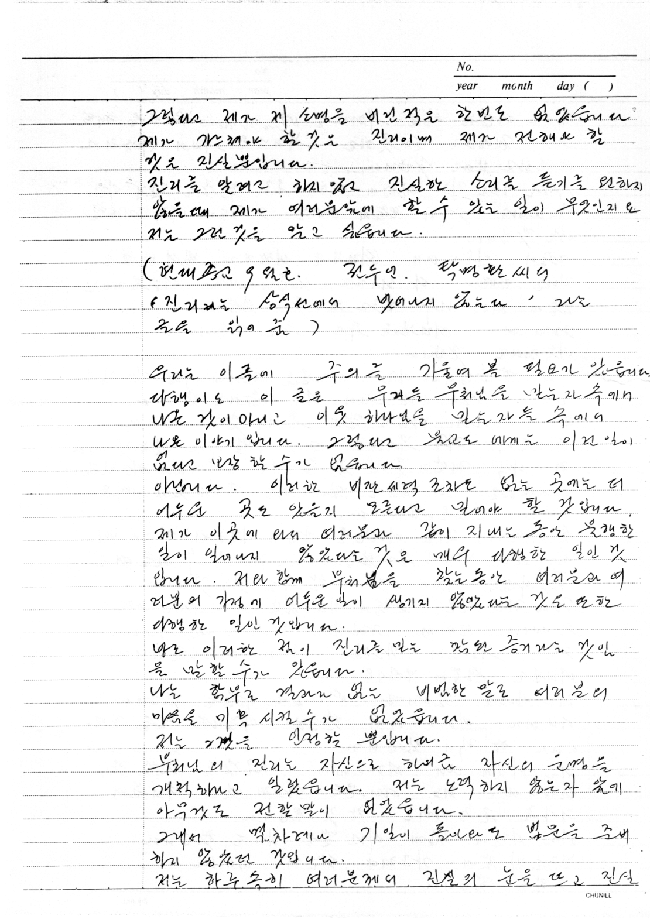 No.
year month day ( )
그렇다고 제가 제 소명을 버린적은 한번도 없었습니다
제가 가르쳐야 할것은 진리이며 제가 전해야 할
것은 진실뿐입니다.
진리를 알려고 하지 않고 진실한 소리를 듣기를 원하지
않을때 제가 여러분앞에 할 수 있는 일이 무엇인지요
저는 그런것을 알고 싶습니다.
(현대종교 9월호. 탁명환씨의
(진리라는 상식선에서 벗어나지 않는다' 라는
글을 읽어 줌 )
우리는 이글에 주의를 기울여 볼 필요가 있습니다
다행이도 이 글은 우리들 믿는자 속에서
나온 것이 아니고 이웃 하나님을 믿는자들 속에서
나온 이야기 입니다. 그렇다고 불교도 에게는 이런일이
없다고 할 수가 없습니다
아닙니다. 이러한 비판세력 조차도 없는 곳에는 더
어두운 곳도 있을지 모른다고 보아야 할 것입니다.
제가 이곳에 와서 여러분과 같이 지내는 동안 불행한
일이 일어나지 않았다는 것은 매우 다행한 일인 것
입니다. 저와 함께 찾는동안 여러분과 여
러분의 가정에 어두운일이 생기지 않았다는 것은 또한
다행한 일인 것입니다.
나는 이러한 점이 진리를 믿는 작은 증거라는 것임
을 말할 수가 있습니다.
나는 함부로 결과가 없는 비범한 말로 여러분의
마음을 미혹 시킬수가 없었습니다.
저는 그것을 인정할 뿐입니다.
부처님의 진리는 자신으로 하여금 자신의 운명을
개척하라고 일렀습니다. 저는 노력하지 않는자 앞에
아무것도 전할말이 없었습니다.
그래서 몇차례나 기일이 돌아와도 법문을 준비
하지 않았던 것입니다.
저는 하루속히 여러분께서 진실의 눈을 뜨고 진실
CHUNILL